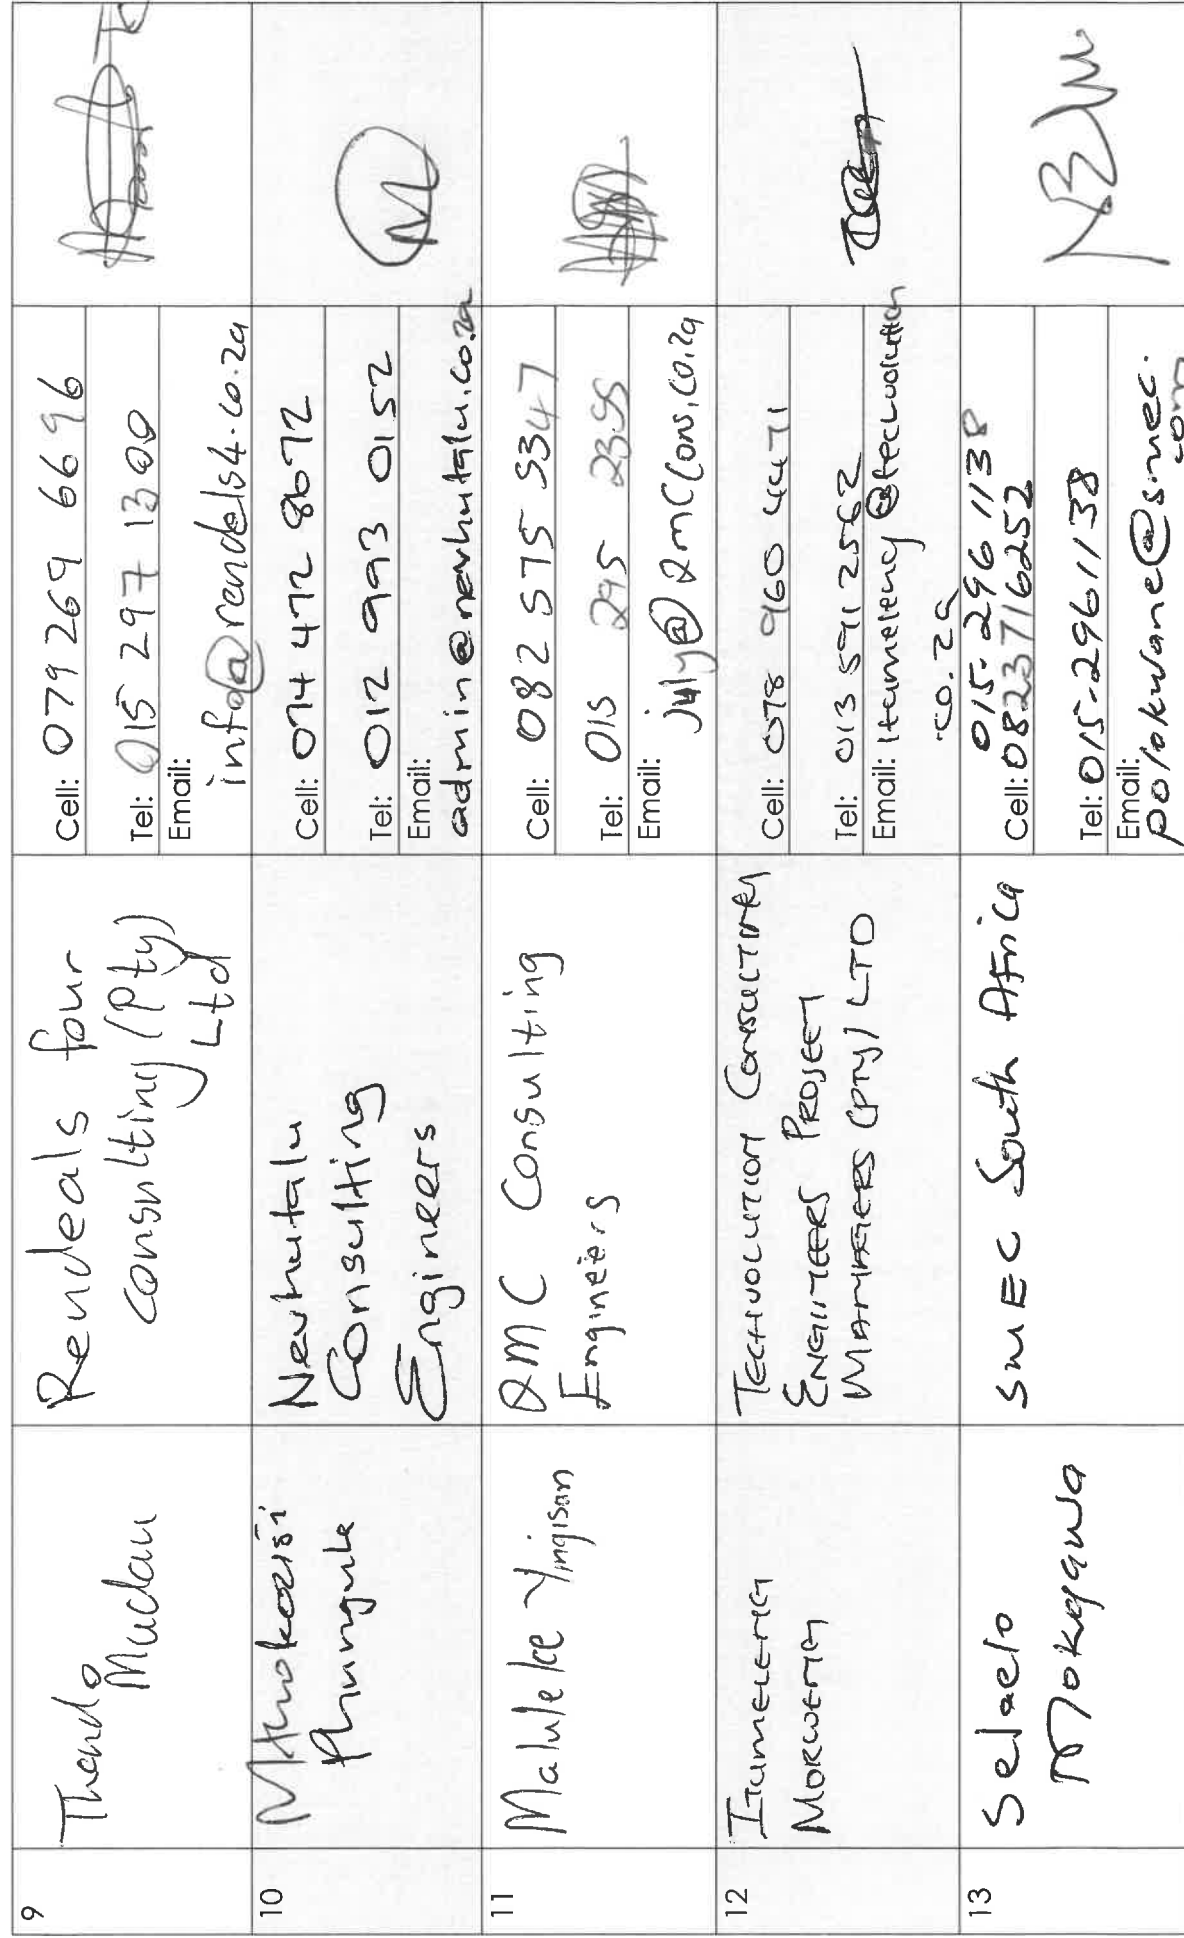 9
Thendo
Mudau
Rendeals four
Consulting (Pty)
Ltd
Cell: 079 269 6696
Tel: 015 297 1300
Email:
info@rendels4.co.za
10
Mthokozisi
Phungula
Nevhutalu
Consulting
Engineers
Cell: 074 472 8672
Tel: 012 993 0152
Email:
admin@nevhutalu.co.za
11
Maluleke Yingisan
DMC Consulting
Engineers
Cell: 082 575 5347
Tel: 015 295
Email:
12
Itumeleng
Morweng
Techvolution Consulting
Engineers Project
Managers (Pty) LTD
Cell: 078 960 4471
Tel: 013 591 2562
Email: Itumeleng@techvolution
.co.za
13
Selaelo
Mokgawa
SMEC South Africa
015-296 1138
Cell: 0823716252
Tel: 015-2961138
Email:
polokwane@smec.
com